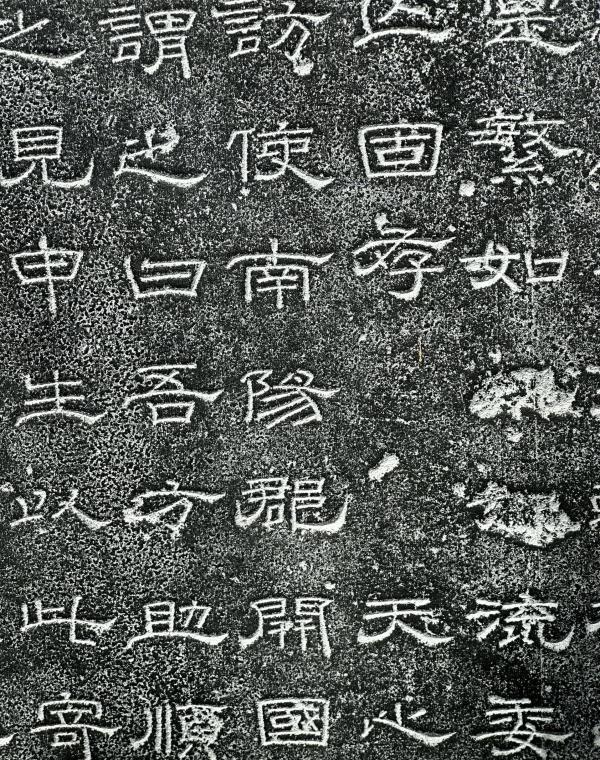 繁如流委
固孝天
訪使南陽郡開國
謂之曰吾方助順
之見申生以此寄